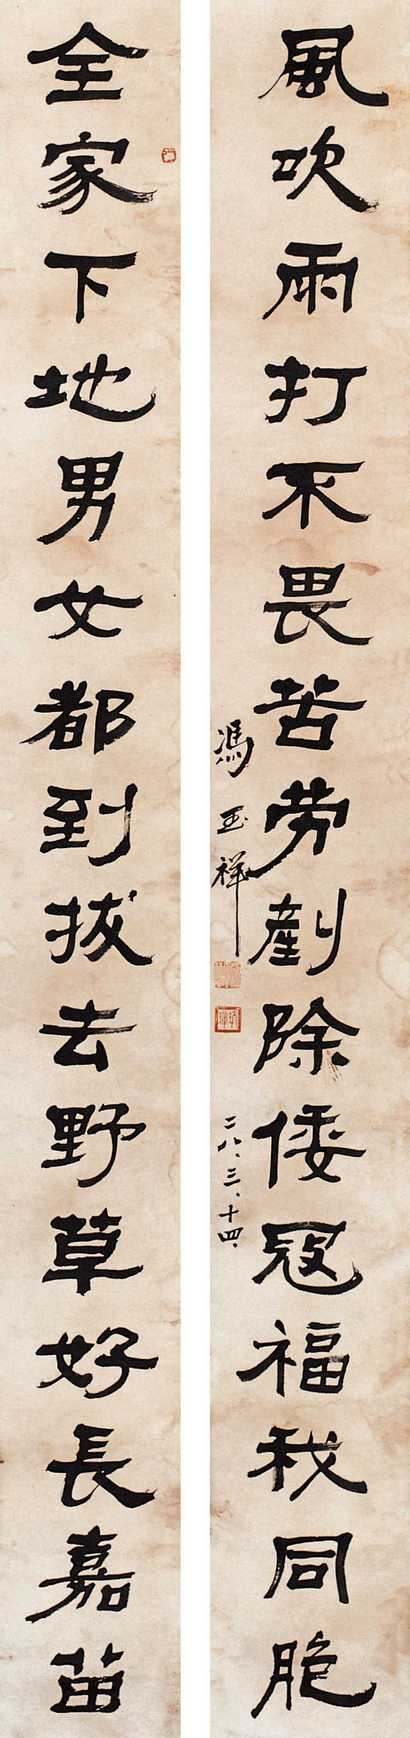 風吹雨打不畏苦勞剷除倭寇福我同胞
馮玉祥
二八、三、十四、
全家下地男女都到拔去野草好長嘉苗